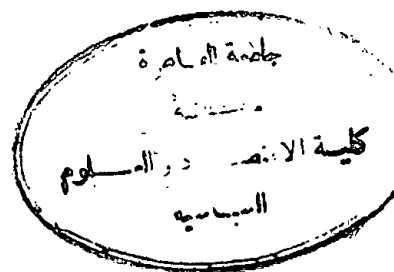 جامعة القاهرة
مكتبة
كلية الاقتصاد و العلوم
السياسية